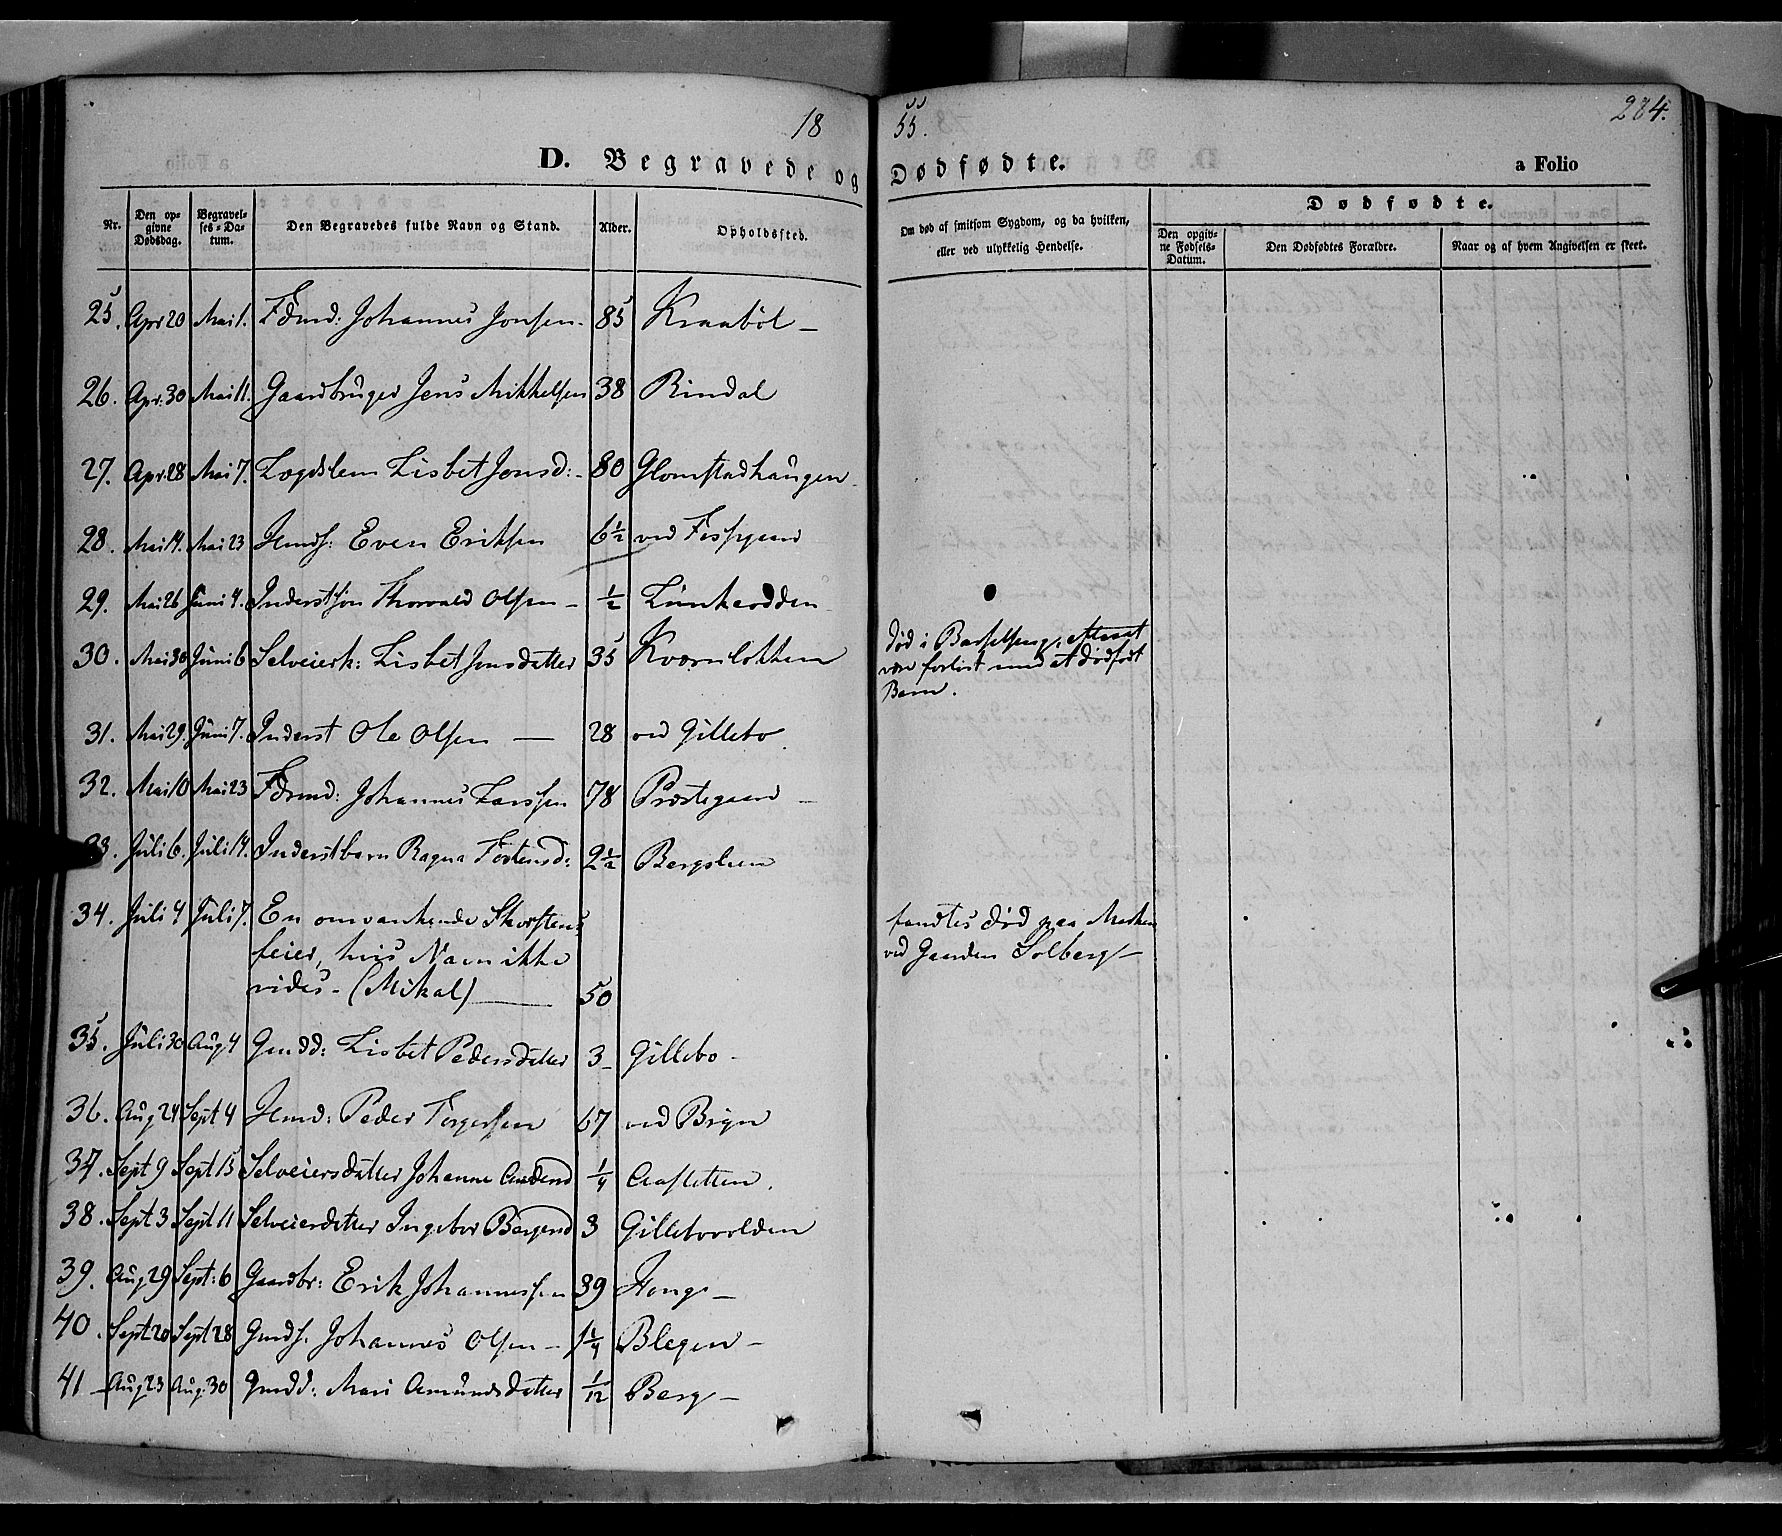 18 55.
284.
D. Begravede og Dødfødte.
a Folio
Nr.
Den opgivne Dødsdag.
Begravelses-Datum.
Den Begravedes fulde Navn og Stand.
Alder.
Opholdssted.
Om død af smitsom Sygdom, og da hvilken, eller ved ulykkelig Hendelse.
Dødfødte.
Den opgivne Fødsels-Datum.
Den Dødfødtes Forældre.
Naar og af hvem Angivelsen er skeet.
25. Apr 20 Mai 1. Johannes Jonsen 85 Kraaböl
26. Apr. 30 Mai 11. Gaardbruger Jens Mikkelsen 38 Rindal
27. Apr 28 Mai 7. Lægdslem Lisbet Jonsd: 80 Glomstadhaugen
28. Mai 14. Mai 23 Even Eriksen 6½ ved
29. Mai 26 Juni 4. Inderstsøn Thorvald Olsen ½
30. Mai 30 Juni 6 Selveierk: Lisbet Jonsdatter 35 Kværnlökken
død i Barselseng, efter at
være forløst med et dødfødt
Barn.
31. Mai 29. Juni 7. Inderst Ole Olsen 28 ved Gillebo
32. Mai 10 Mai 23 Johannes Larsen 78 Præstegaard
33. Juli 6. Juli 14. Inderstbarn Ragna 2½ Bergslien
34. Juli 4 Juli 7. En omvankende Skorstens
feier, hvis Navn ikke
vides - (Mikal) 50
fandtes død paa Marken
ved Gaarden Solberg
35. Juli 30 Aug 4 Gmdd: Lisbet Pedersdatter 3 Gillebo
36. Aug 24 Sept 4 Peder Torgersen 67 ved Bryn
37. Sept 9 Sept 15 Selveiersdatter Johanne ¼ Aasletten
38. Sept 3 Sept 11 Selveierdatter Ingebor 3 Gillebovolden
39. Aug 29 Sept: 6 Gaardbr: Erik Johannessen 39 Haugs
40. Sept 20 Sept 28 Gmds. Johannes Olsen 1¼ Blegen
41 Aug 23 Aug. 30 Gmdd: Mari Amundsdatter 1/12 Berg